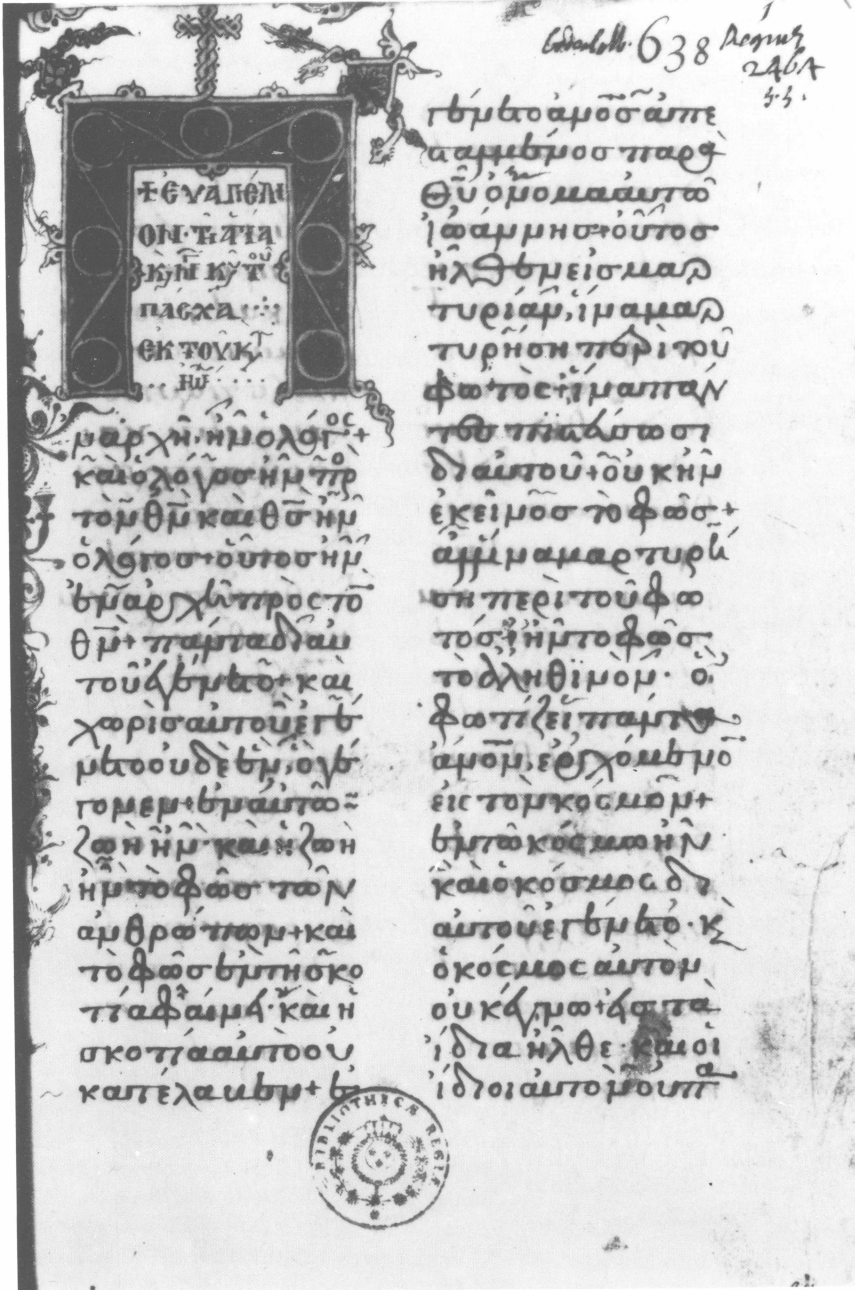 638
2464
+ ΕΥΑΓΓΕΛΙ
ΟΝ
ΠΑΣΧΑ
ΕΚ ΤΟΥ Κ
ΙΩ
ν ἀρχῆ ἦν ὁ λόγος +
καὶ ὁ λόγος ἦν πρ
τὸν θν καὶ θς ἦν
ὁ λόγος + οὗτος ἦν
ἐν ἀρχῆ πρὸς το
θν + πάντα δι αυ
τοῦ ἐγένετο + καὶ
χωρὶς αὐτοῦ ἐγέ
νετο οὐδὲ ἕν, ὃ γέ
γονεν + ἐν αὐτῶ
ζωὴ ἦν · καὶ ἡ ζωὴ
ἦν τὸ φῶς τῶν
ἀνθρώπων + καὶ
τὸ φῶς ἐν τῆ σκο
τία φαίνει · καὶ ἡ
σκοτία αὐτὸ οὐ
κατέλαβεν + ἐ
γένετο ἄνος ἀπε
σταλμένος παρὰ
θυ ὄνομα αὐτῶ
ἰωάννης + οὗτος
ἦλθεν εἰς μαρ
τυρίαν, ἵνα μαρ
τυρήση περὶ τοῦ
φωτός + ἵνα πάν
τες πιστεύσωσι
δι αὐτοῦ + οὐκ ἦν
ἐκεῖνος τὸ φῶς +
ἀλλ ἵνα μαρτυρή
ση περὶ τοῦ φω
τός + ἦν τὸ φῶς
τὸ ἀληθινόν · ὃ
φωτίζει πάντα
ἄνον, ἐρχόμενο
εἰς τὸν κόσμον +
ἐν τῶ κόσμω ἦν
καὶ ὁ κόσμος δι
αὐτοῦ ἐγένετο · κ
ὁ κόσμος αὐτὸν
οὐκ ἔγνω + εἰς τὰ
ἴδια ἦλθε · καὶ οἱ
ἴδιοι αὐτὸν οὐ πα
BIBLIOTHECÆ REGIÆ